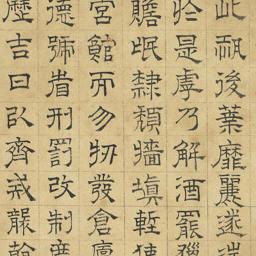 此恐後葉靡麗遂往
於是虖乃解酒罷獵
贍氓隸隤牆填塹使
宮館而勿牣發倉廩
德號省刑罰改制度
歷吉日以齊戒襲朝